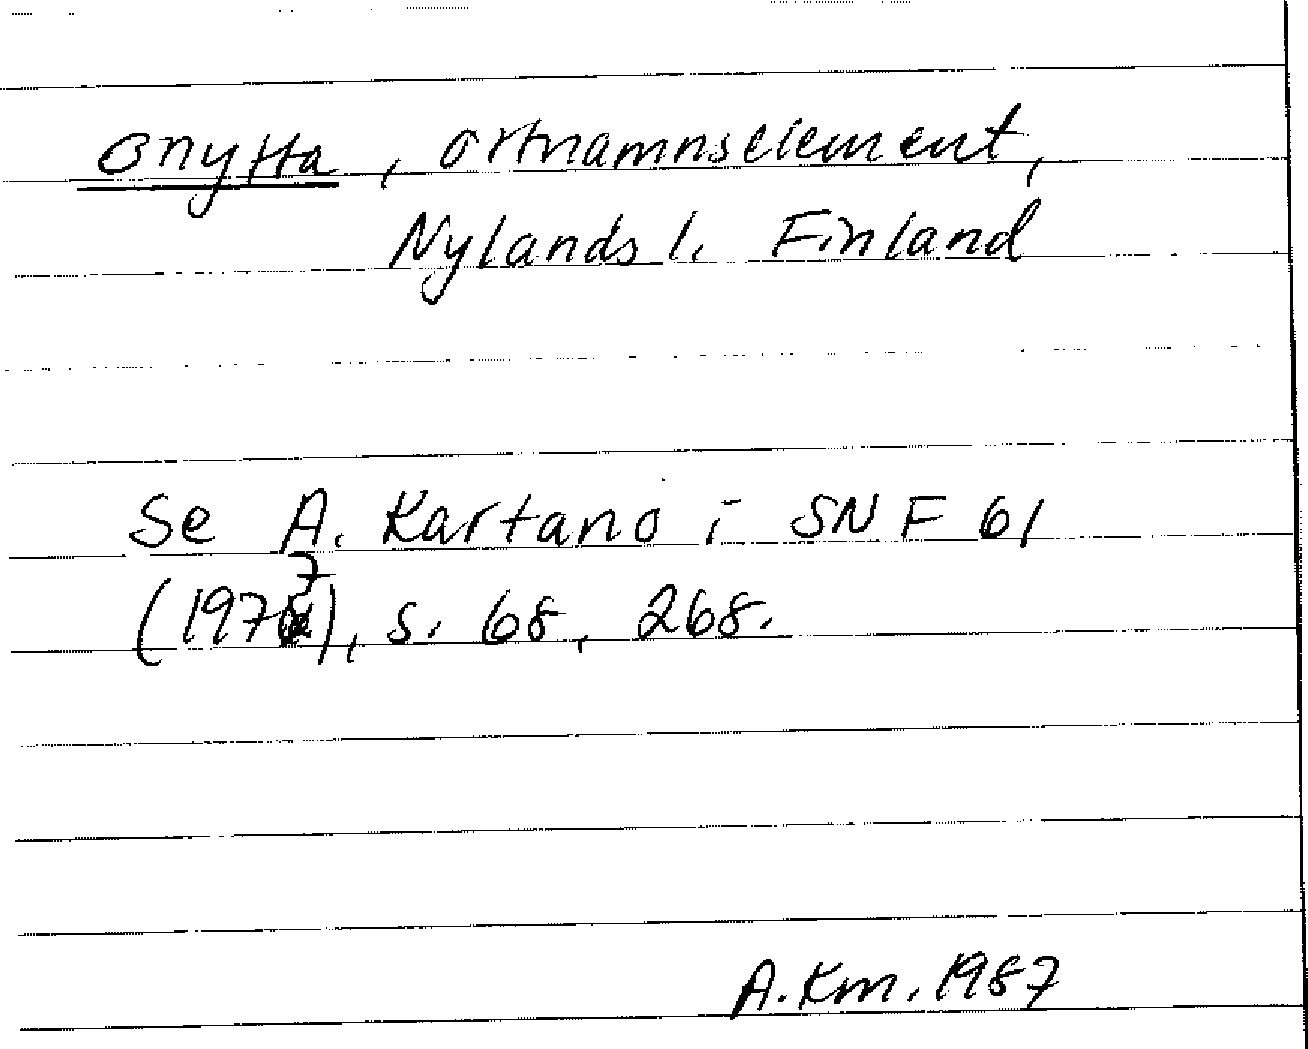 onytta, ortnamnselement,
Nylands l. Finland
Se A. Kartano i SNF 61
(1977), s. 68, 268.
A.Km. 1987